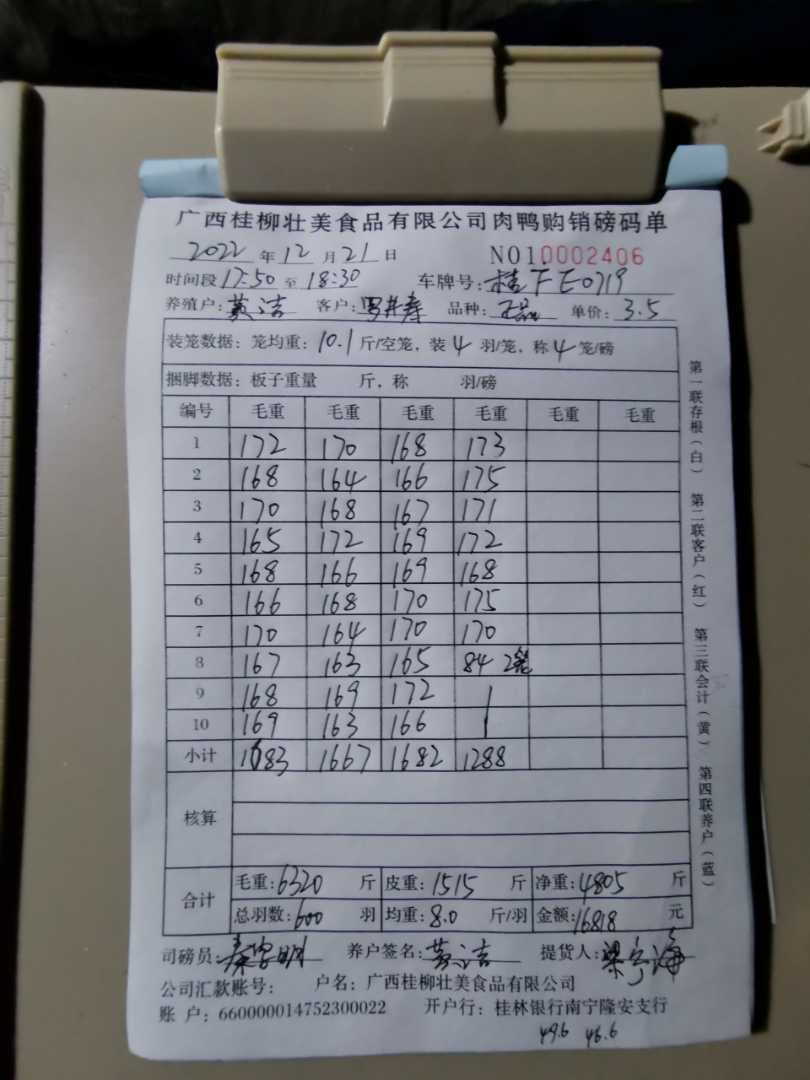 广西桂柳壮美食品有限公司肉鸭购销磅码单
2022 年 12 月 21 日 NO10002406
时间段 17:50 至 18:30 车牌号: 桂 F E0719
养殖户: 黄洁 客户: 品种: 正品 单价: 3.5
装笼数据: 笼均重: 10.1 斤/空笼, 装 4 羽/笼, 称 4 笼/磅
捆脚数据: 板子重量 斤, 称 羽/磅
编号 毛重 毛重 毛重 毛重 毛重 毛重
1 172 170 168 173
2 168 164 166 175
3 170 168 167 171
4 165 172 169 172
5 168 166 169 168
6 166 168 170 175
7 170 164 170 170
8 167 163 165 84 2笼
9 168 169 172
10 169 163 166
小计 1683 1667 1682 1288
核算
合计 毛重: 6320 斤 皮重: 1515 斤 净重: 4805 斤
总羽数: 600 羽 均重: 8.0 斤/羽 金额: 16818 元
司磅员: 养户签名: 黄洁 提货人: 梁宁海
公司汇款账号: 户名: 广西桂柳壮美食品有限公司
账 户: 660000014752300022 开户行: 桂林银行南宁隆安支行
49.6 46.6
第一联存根(白) 第二联客户(红) 第三联会计(黄) 第四联养户(蓝)